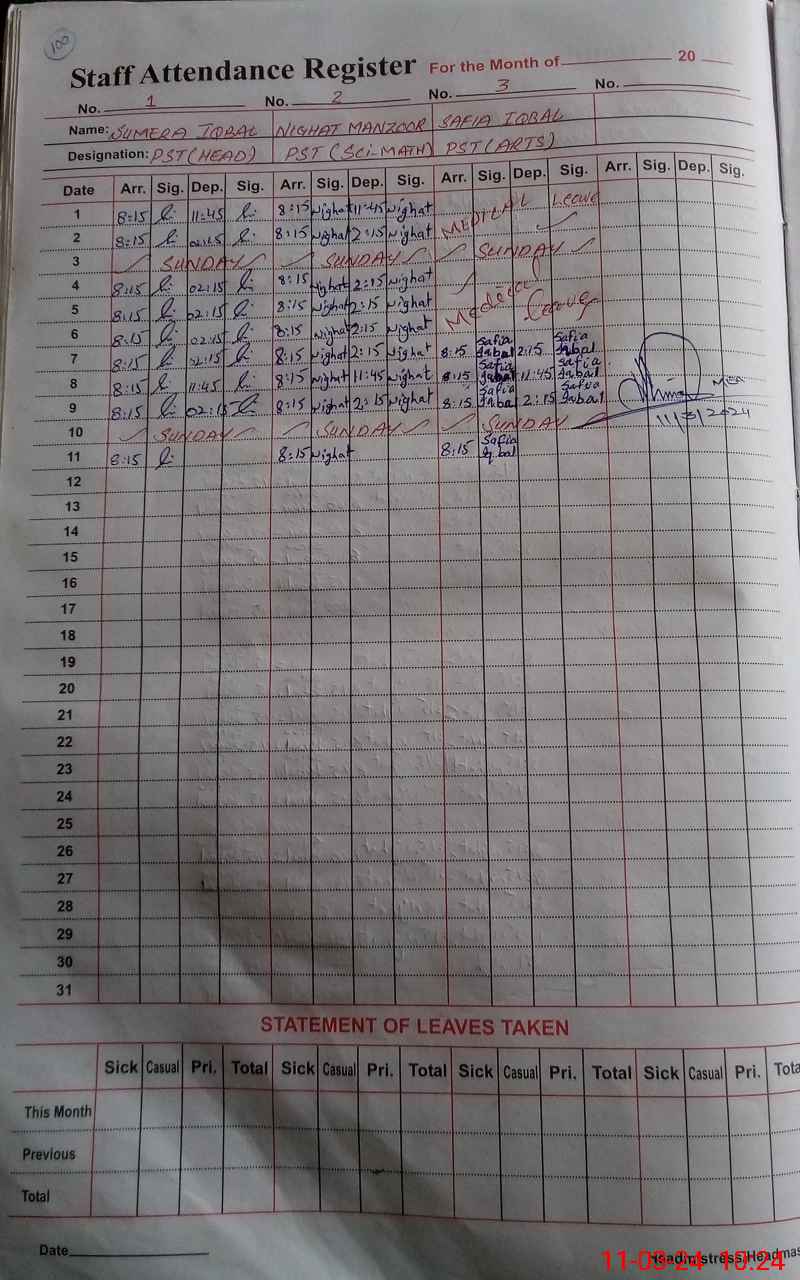 100
Staff Attendance Register For the Month of 20
No. 1 No. 2 No. 3 No.
Name: SUMERA IQBAL NIGHAT MANZOOR SAFIA IQBAL
Designation: PST (HEAD) PST (Sci-MATH) PST (ARTS)
Date Arr. Sig. Dep. Sig. Arr. Sig. Dep. Sig. Arr. Sig. Dep. Sig. Arr. Sig. Dep. Sig.
1 8:15 11:45 8:15 Nighat 11:45 Nighat MEDICAL Leave
2 8:15 02:15 8:15 Nighat 2:15 Nighat
3 SUNDAY SUNDAY SUNDAY
4 8:15 02:15 8:15 Nighat 2:15 Nighat
5 8:15 02:15 8:15 Nighat 2:15 Nighat Medical Leave
6 8:15 02:15 8:15 Nighat 2:15 Nighat
7 8:15 02:15 8:15 Nighat 2:15 Nighat 8:15 Safia Iqbal 2:15 Safia Iqbal
8 8:15 11:45 8:15 Nighat 11:45 Nighat 8:15 Safia Iqbal 11:45 Safia Iqbal
9 8:15 02:15 8:15 Nighat 2:15 Nighat 8:15 Safia Iqbal 2:15 Safia Iqbal MEA
10 SUNDAY SUNDAY SUNDAY 11/3/2024
11 8:15 8:15 Nighat 8:15 Safia Iqbal
12
13
14
15
16
17
18
19
20
21
22
23
24
25
26
27
28
29
30
31
STATEMENT OF LEAVES TAKEN
Sick Casual Pri. Total Sick Casual Pri. Total Sick Casual Pri. Total Sick Casual Pri. Tota
This Month
Previous
Total
Date Headmistress/Headmas
11-03-24 10:24